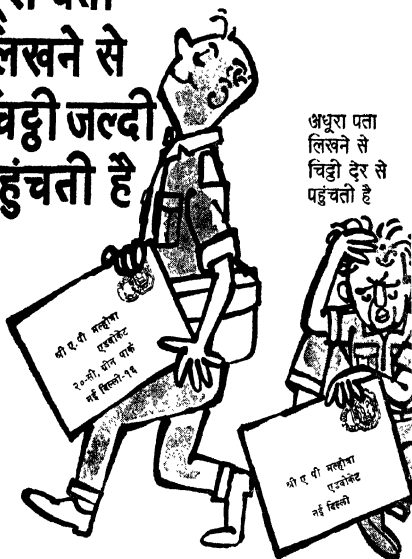 लखने से
जल्दी
है
अधूरा पता
लिखने से
चिट्ठी देर से
पहुंचती है
श्री ए. पी मल्होत्रा
एडवोकेट
२०-सी, ग्रीन पार्क
नई दिल्ली-१६
श्री ए पी मल्होत्रा
एडवोकेट
नई दिल्ली